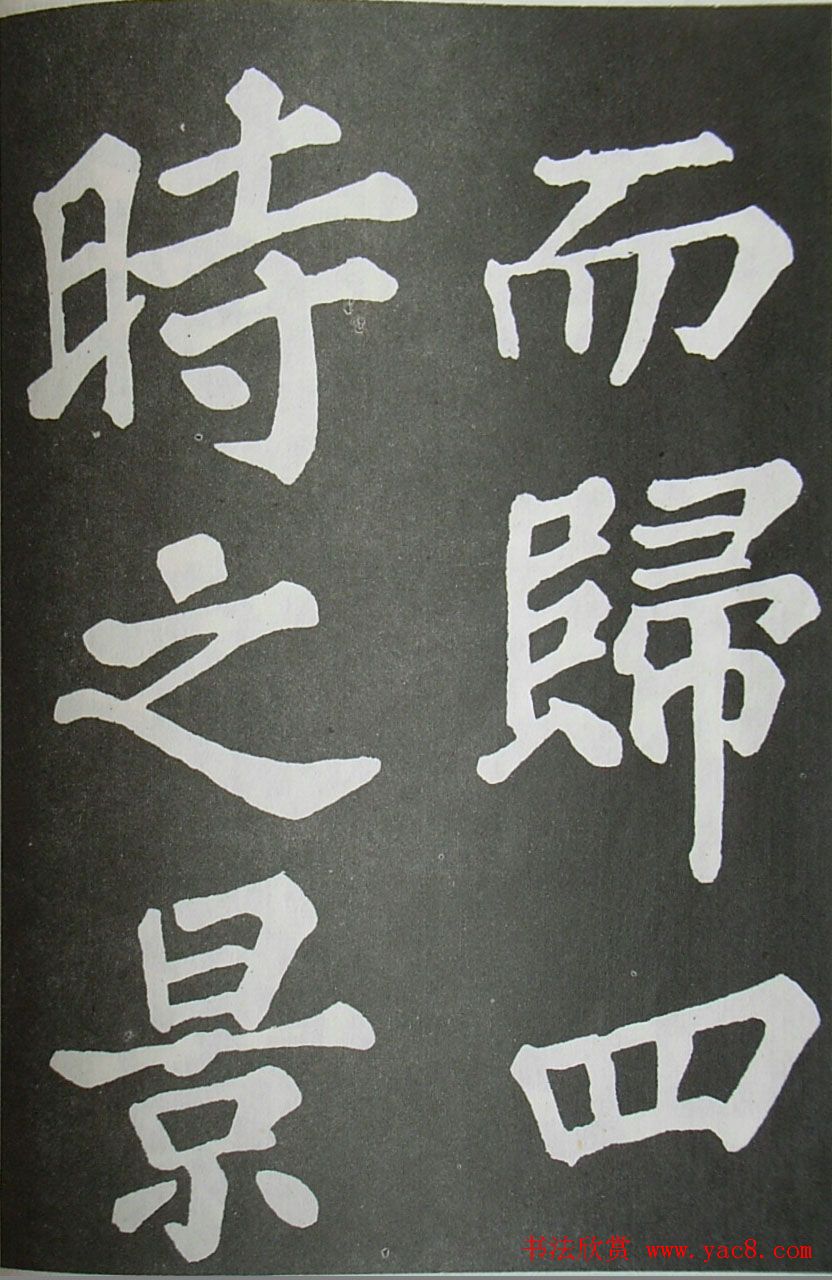 而歸四
時之景
书法欣赏 www.yac8.com